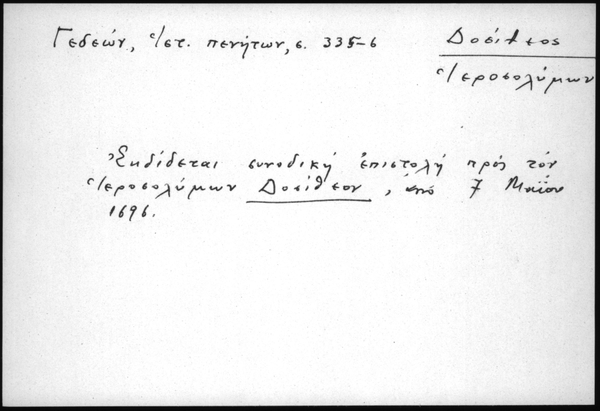 Γεδεών, Ἱστ. πενήτων, σ. 335-6
Δοσίθεος
Ἱεροσολύμων
Ἐκδίδεται συνοδική ἐπιστολή πρός τόν
Ἱεροσολύμων Δοσίθεον, ἀπό 7 Μαΐου
1696.